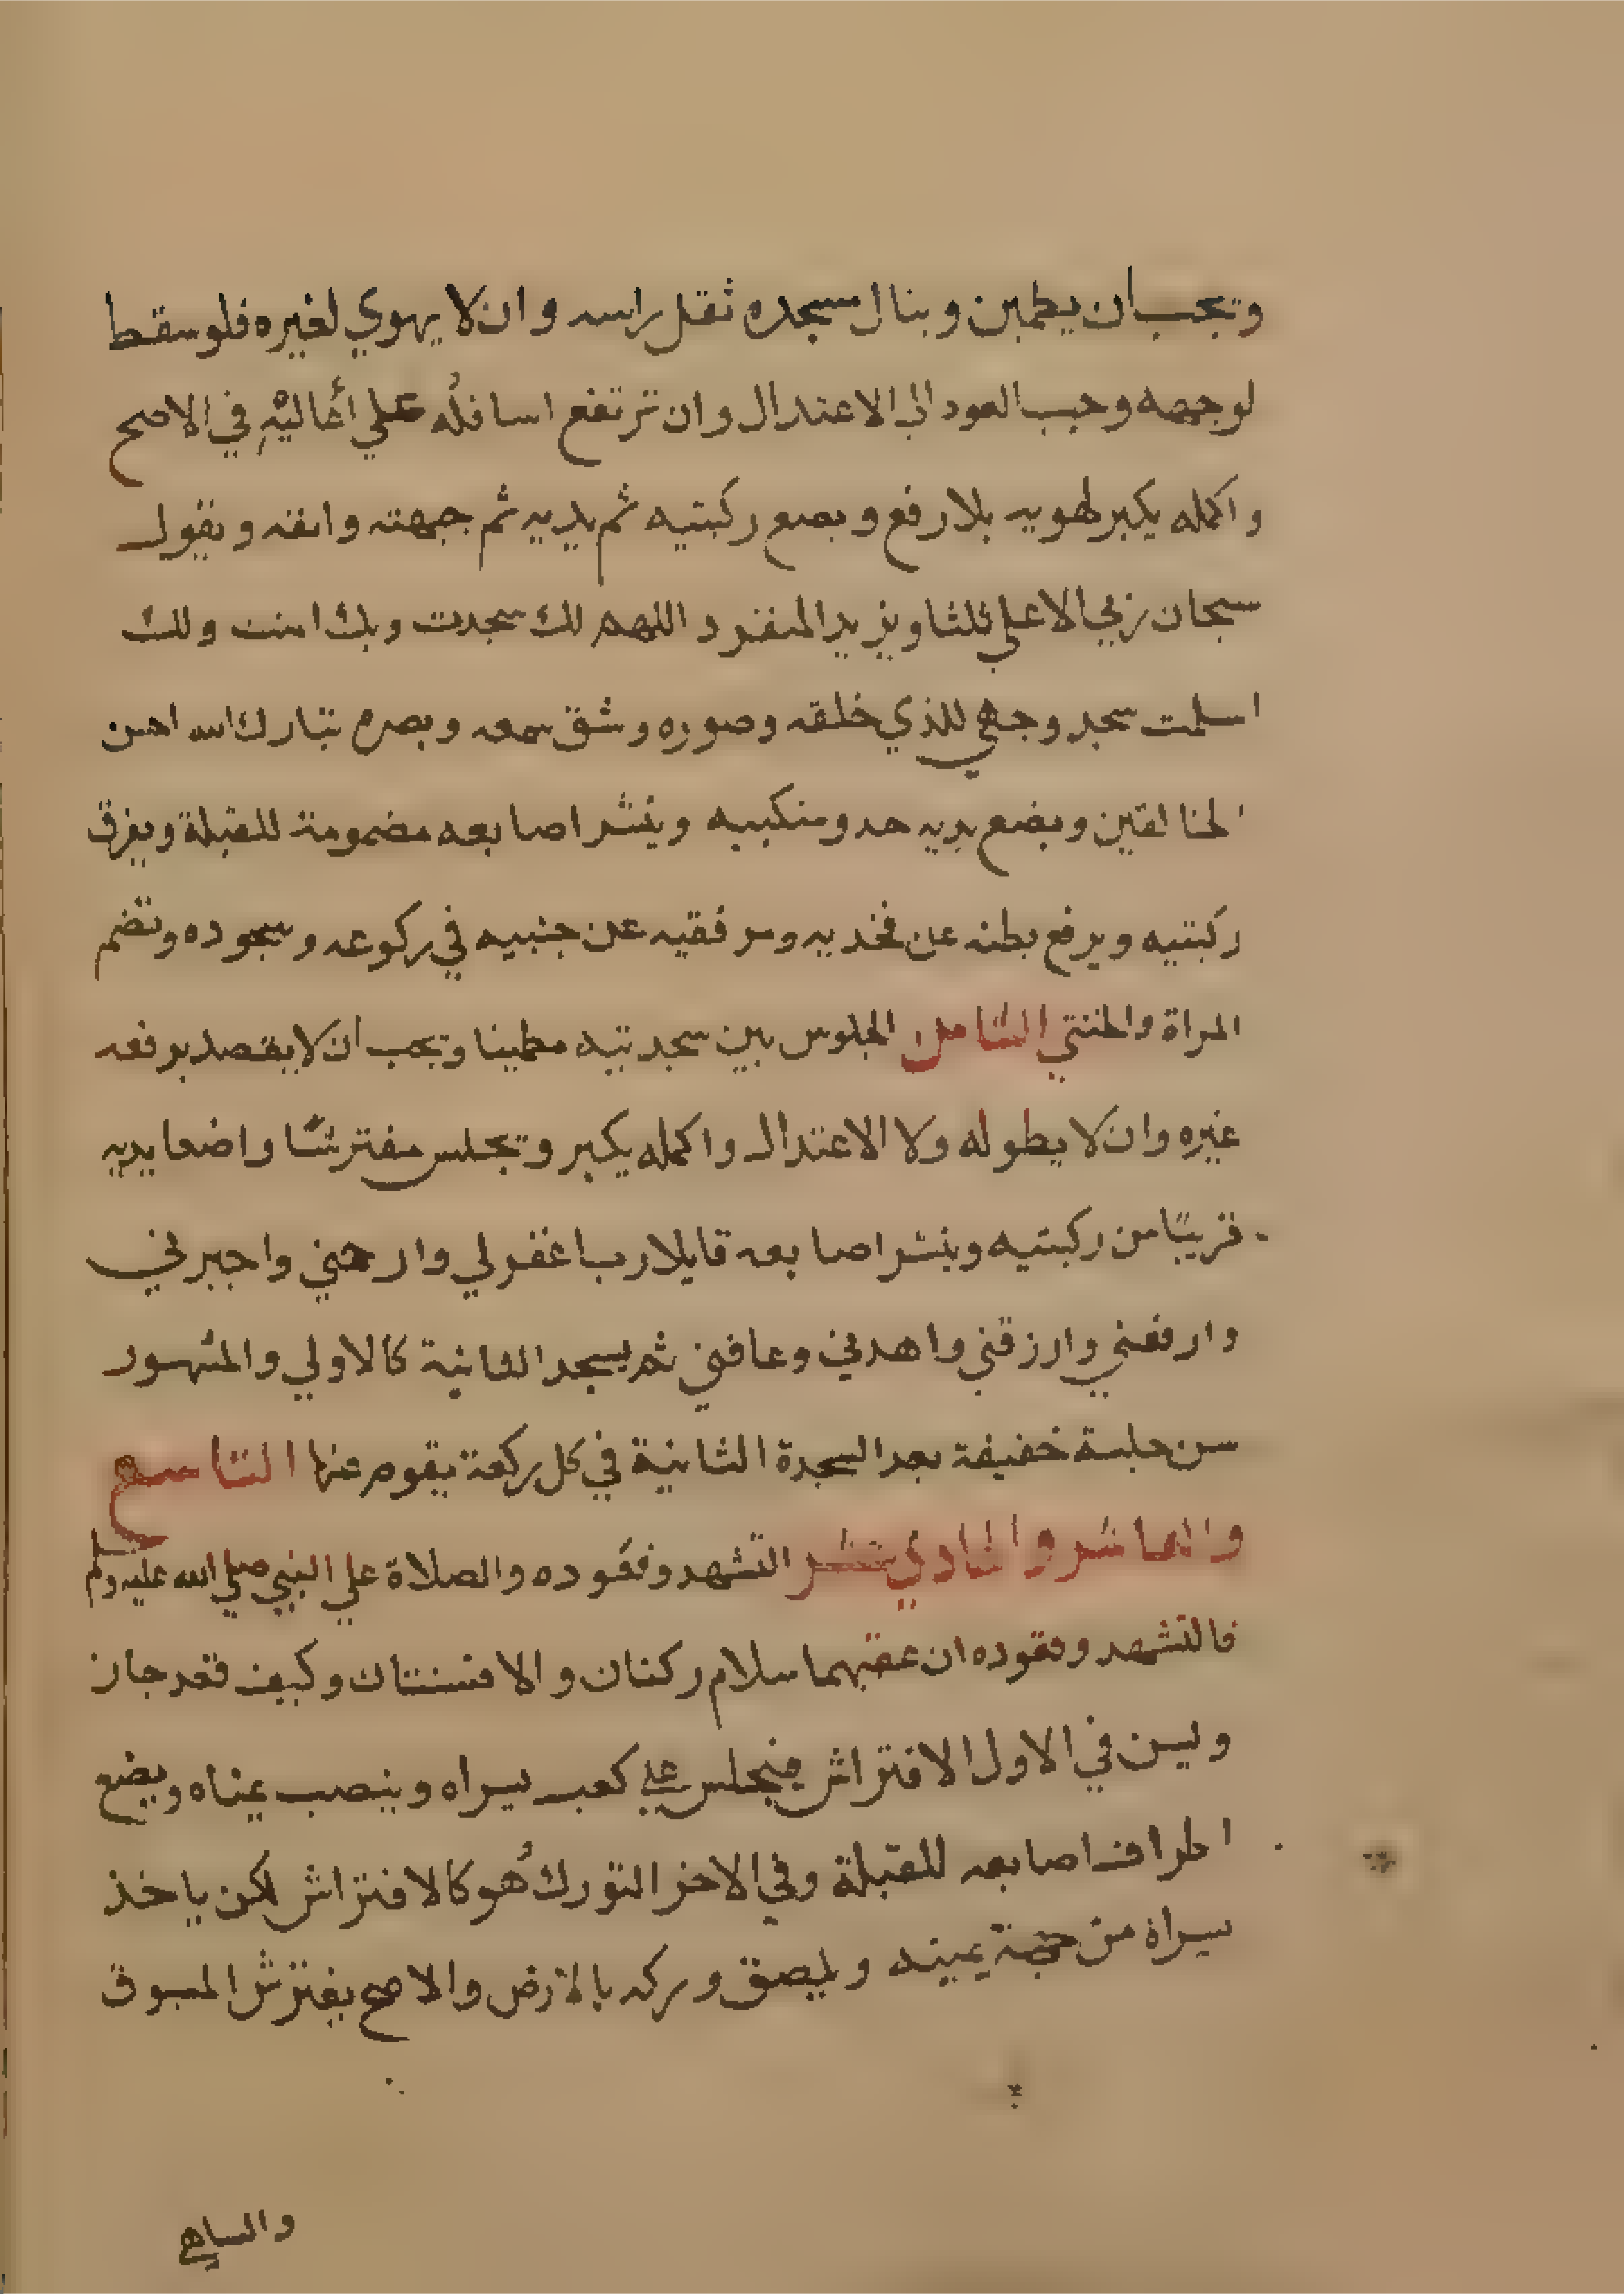 ويجب ان يطمين وينال مسجده ثقل راسه وان لا يهوي لغيره فلو سقط
لوجهه وجب العود الي الاعتدال وان ترتفع اسافله علي أعاليه في الاصح
واكمله يكبر لهويه بلا رفع ويضع ركبتيه ثم يديه ثم جبهته وانفه ويقول
سبحان ربي الاعلي ثلثا ويزيد المنفرد اللهم لك سجدت وبك امنت ولك
اسلمت سجد وجهي للذي خلقه وصوره وشق سمعه وبصره تبارك الله احسن
الخالقين ويضع يديه حدو منكبيه وينشر اصابعه مضمومة للقبلة ويفرق
ركبتيه ويرفع بطنه عن فخديه ومرفقيه عن جنبيه في ركوعه وسجوده وتضم
المراة والخنثي الثامن الجلوس بين سجدتيه مطمينا ويجب ان لا يقصد برفعه
غيره وان لا يطوله ولا الاعتدال واكمله يكبر ويجلس مفترشا واضعا يديه
قريبًا من ركبتيه وينشر اصابعه قايلا رب اغفر لي وارحمني واجبرني
وارفعني وارزقني واهدني وعافني ثم يسجد الثانية كالاولي والمشهور
سن جلسة خفيفة بعد السجدة الثانية في كل ركعة يقوم عنها التاسع
والعاشر والحادي عشر التشهد وقعوده والصلاة علي النبي صلي الله عليه وسلم
فالتشهد وقعوده ان عقبهما سلام ركنان والا فسنتان وكيف قعد جاز
ويسن في الاول الافتراش فيجلس علي كعب يسراه وينصب يمناه ويضع
اطراف اصابعه للقبلة وفي الاخر التورك هو كالافتراش لكن ياخذ
يسراه من جهة يمينه ويلصق وركه بالارض والاصح يفترش المسبوق
والساهي